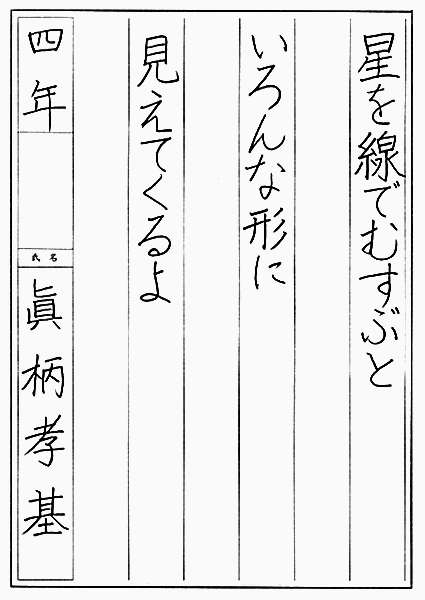 星を線でむすぶと
いろんな形に
見えてくるよ
四年
氏名
眞柄孝基